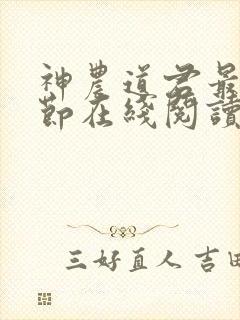 神農道君最
節在綫閱讀
三好直人 吉田